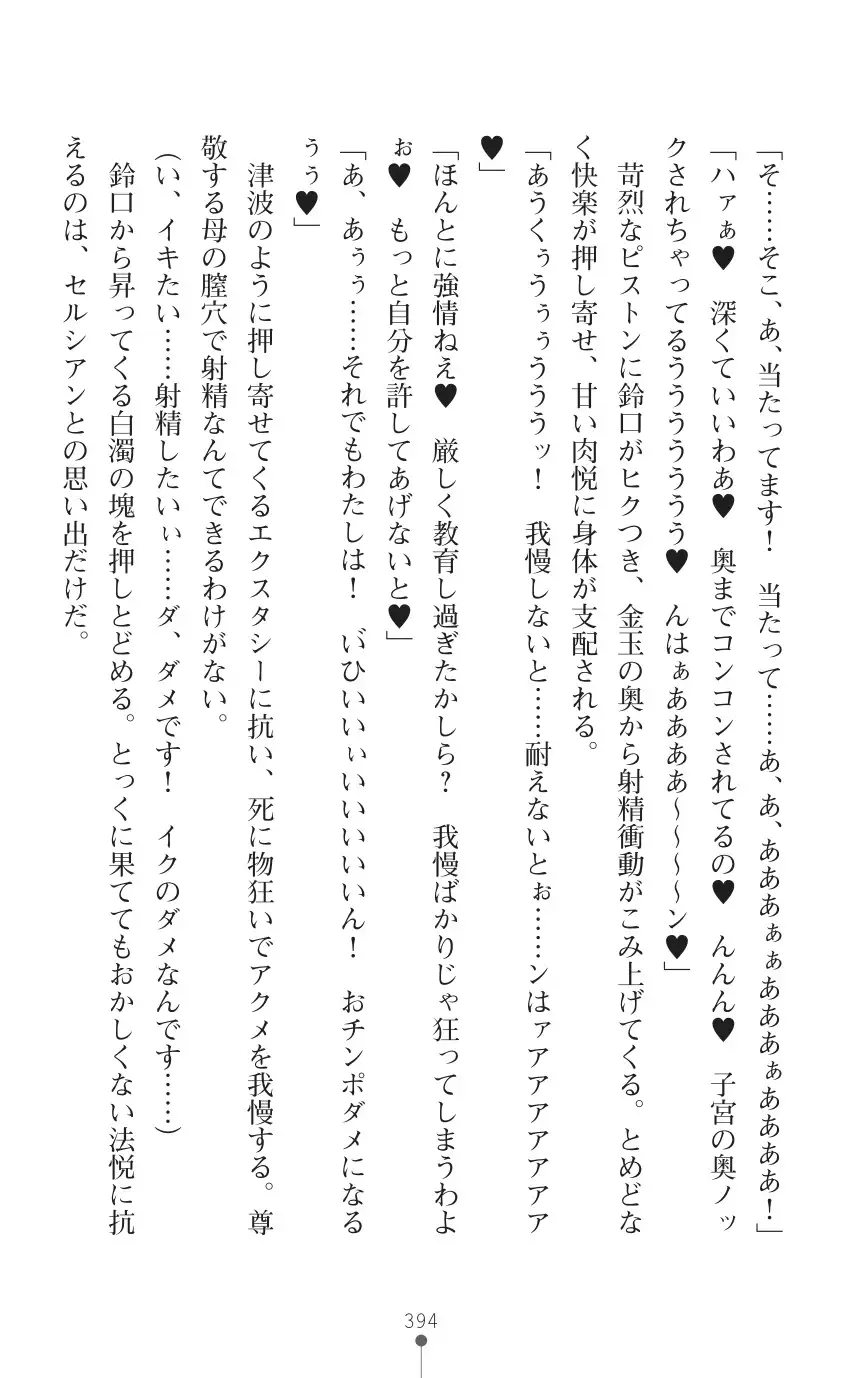 「そ……そこ、あ、当たってます！　当たって……あ、あ、あああぁぁあああぁああああ！」
「ハァぁ♥　深くていいわあ♥　奥までコンコンされてるの♥　んんん♥　子宮の奥ノッ
クされちゃってるううううううう♥　んはぁああああ～～～～ン♥」
苛烈なピストンに鈴口がヒクつき、金玉の奥から射精衝動がこみ上げてくる。とめどな
く快楽が押し寄せ、甘い肉悦に身体が支配される。
「あうくぅうぅぅうううッ！　我慢しないと……耐えないとぉ……ンはァアアアアアアア
♥」
「ほんとに強情ねえ♥　厳しく教育し過ぎたかしら？　我慢ばかりじゃ狂ってしまうわよ
ぉ♥　もっと自分を許してあげないと♥」
「あ、あぅぅ……それでもわたしは！　い゛ひいいぃいいいいいん！　おチンポダメになる
ぅぅ♥」
津波のように押し寄せてくるエクスタシーに抗い、死に物狂いでアクメを我慢する。尊
敬する母の膣穴で射精なんてできるわけがない。
（い、イキたい……射精したいぃ……ダ、ダメです！　イクのダメなんです……）
鈴口から昇ってくる白濁の塊を押しとどめる。とっくに果ててもおかしくない法悦に抗
えるのは、セルシアンとの思い出だけだ。
394